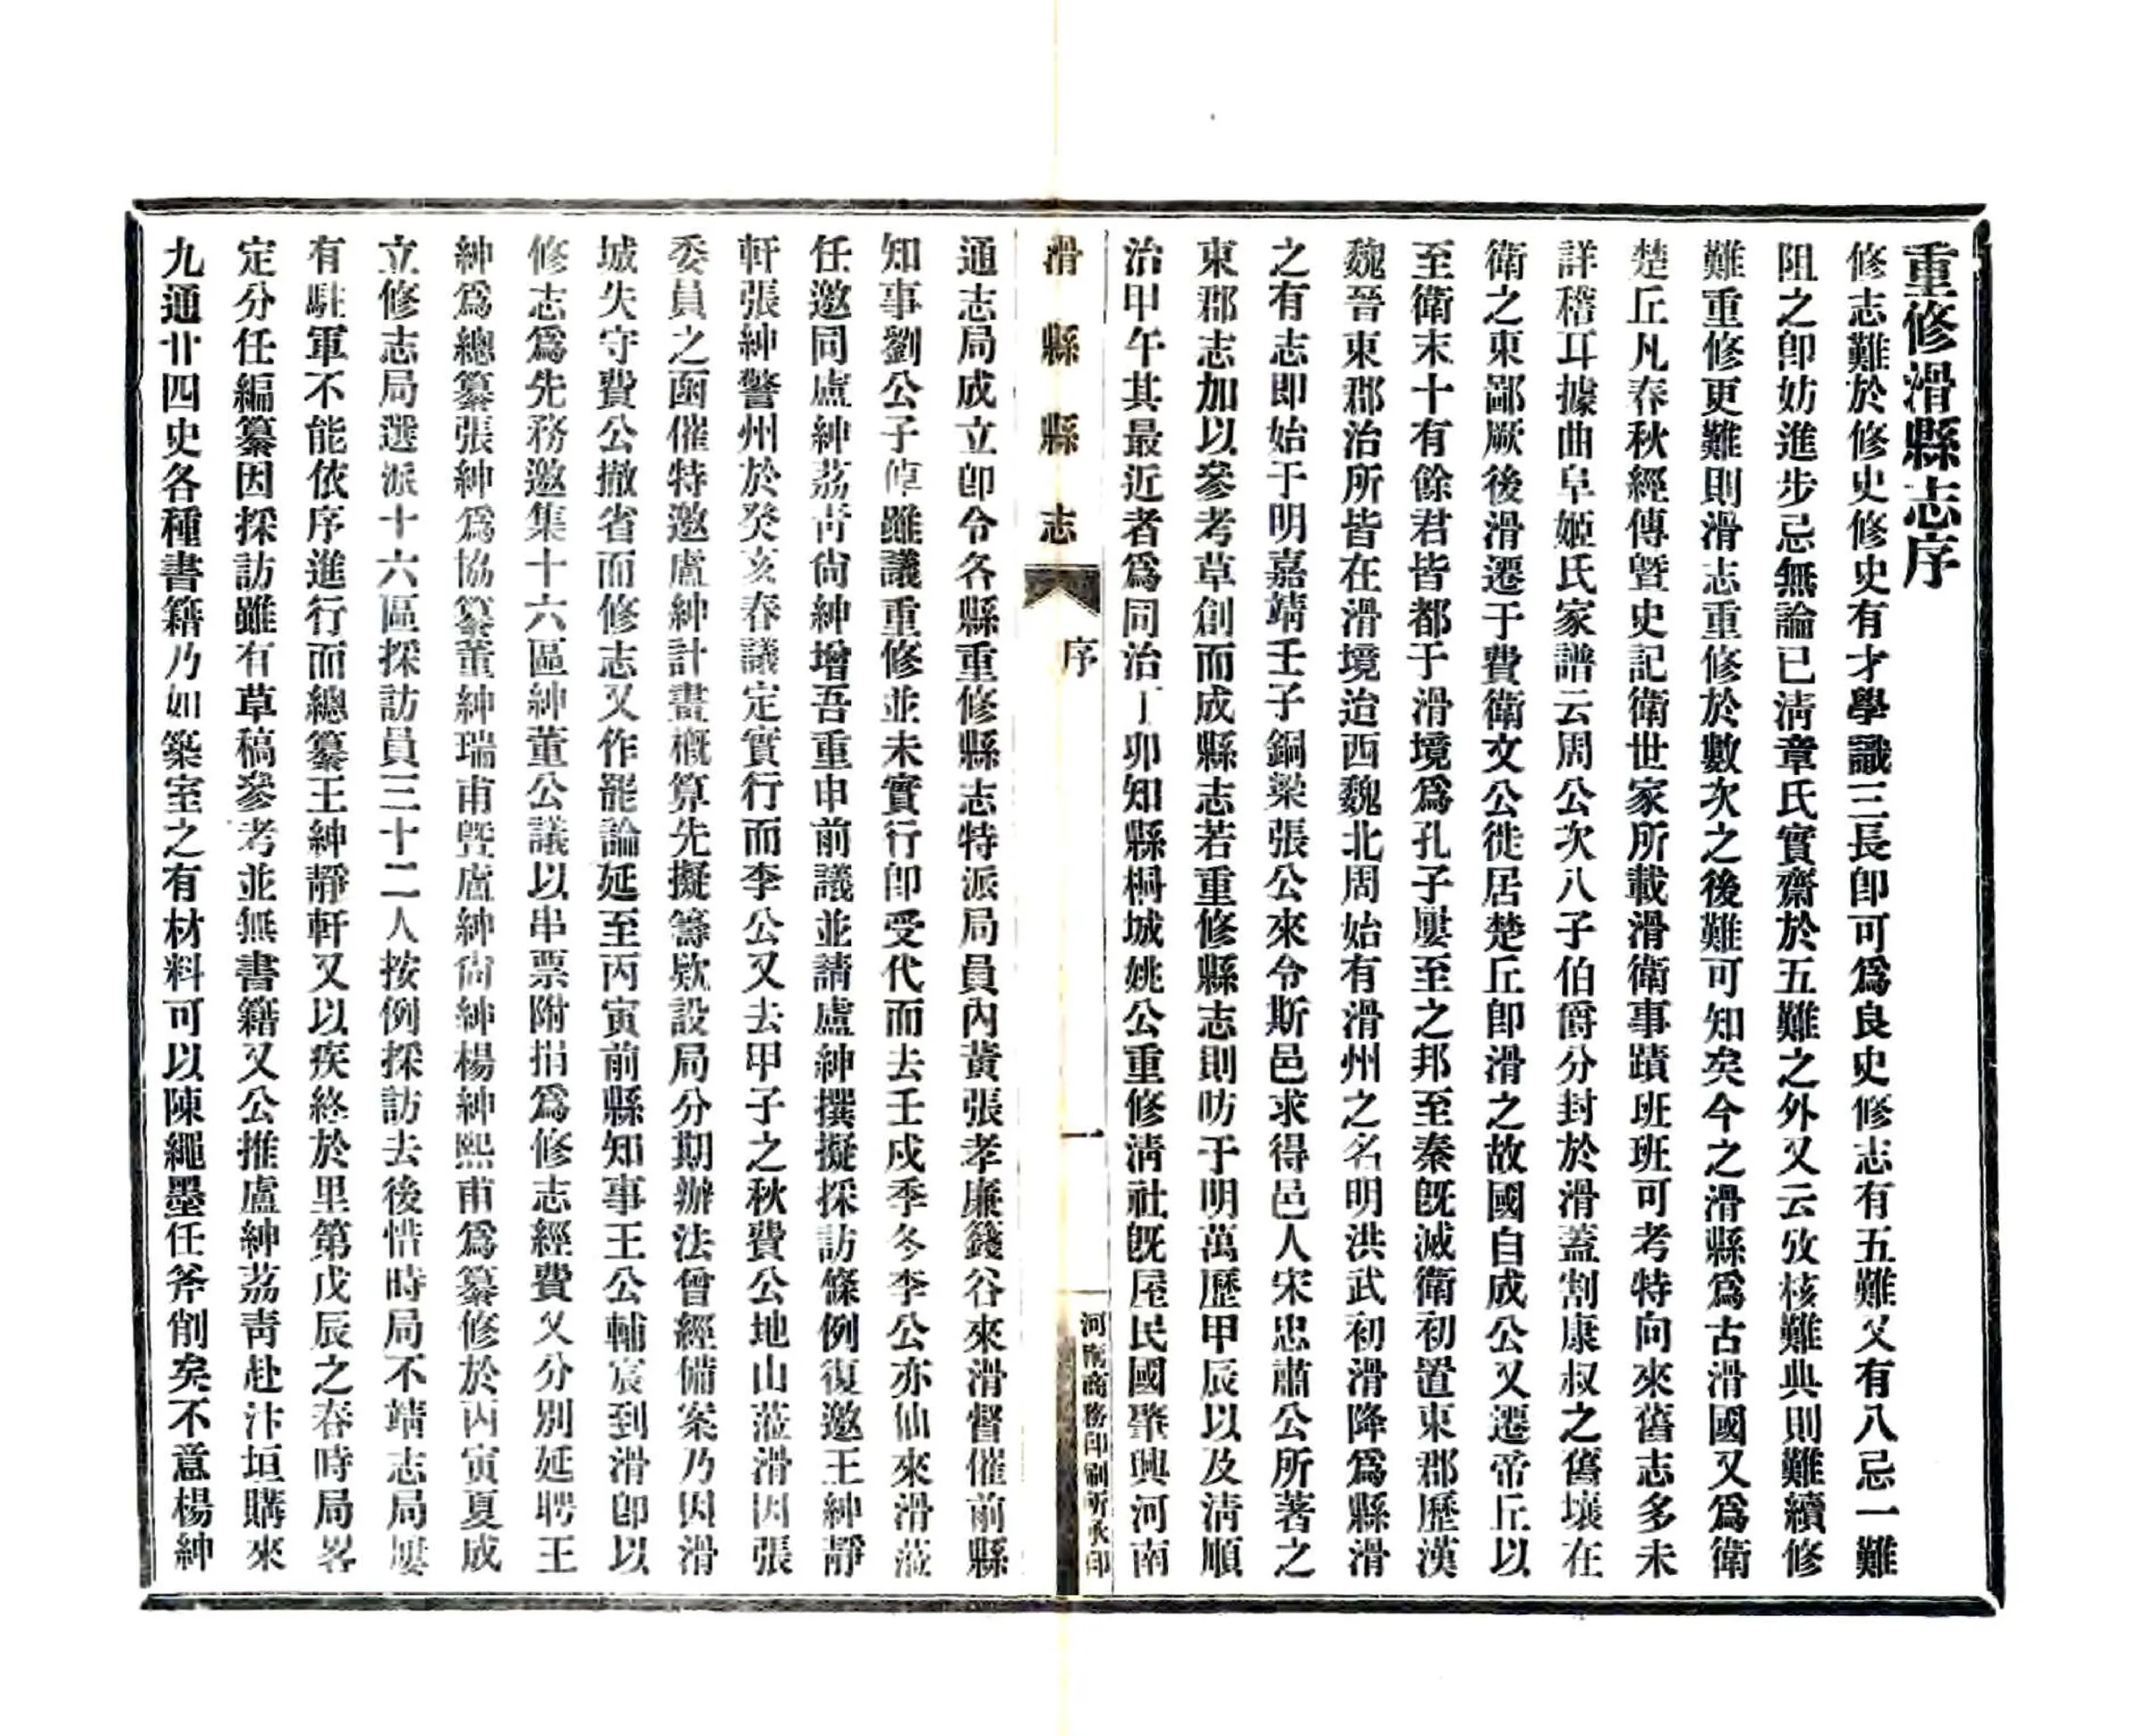 重修滑縣志序
修志難於修史修史有才學識三長即可爲良史修志有五難又有八忌一難
阻之即妨進步忌無論已淸章氏實齋於五難之外又云攷核難典則難續修
難重修更難則滑志重修於數次之後難可知矣今之滑縣爲古滑國又爲衛
楚丘凡春秋經傳曁史記衛世家所載滑衛事蹟班班可考特向來舊志多未
詳稽耳據曲阜姬氏家譜云周公次八子伯爵分封於滑蓋割康叔之舊壤在
衛之東鄙厥後滑遷于費衛文公徙居楚丘即滑之故國自成公又遷帝丘以
至衛末十有餘君皆都于滑境爲孔子屢至之邦至秦旣滅衛初置東郡歷漢
魏晉東郡治所皆在滑境迨西魏北周始有滑州之名明洪武初滑降爲縣滑
之有志即始于明嘉靖壬子銅梁張公來令斯邑求得邑人宋忠肅公所著之
東郡志加以參考草創而成縣志若重修縣志則昉于明萬歷甲辰以及淸順
治甲午其最近者爲同治丁卯知縣桐城姚公重修淸社旣屋民國肇興河南
滑縣縣志 序 一 河南商務印刷所承印
通志局成立即令各縣重修縣志特派局員內黃張孝廉籛谷來滑督催前縣
知事劉公子倬雖議重修並未實行即受代而去壬戍季冬李公亦仙來滑蒞
任邀同盧紳荔靑尙紳增吾重申前議並請盧紳撰擬採訪條例復邀王紳靜
軒張紳警州於癸亥春議定實行而李公又去甲子之秋費公地山蒞滑因張
委員之函催特邀盧紳計畫槪算先擬籌欵設局分期辦法曾經備案乃因滑
城失守費公撤省而修志又作罷論延至丙寅前縣知事王公輔宸到滑即以
修志爲先務邀集十六區紳董公議以串票附捐爲修志經費又分別延聘王
紳爲總纂張紳爲協纂董紳瑞甫曁盧紳尙紳楊紳熙甫爲纂修於丙寅夏成
立修志局選派十六區採訪員三十二人按例採訪去後惜時局不靖志局屢
有駐軍不能依序進行而總纂王紳靜軒又以疾終於里第戊辰之春時局畧
定分任編纂因採訪雖有草稿參考並無書籍又公推盧紳荔靑赴汴垣購來
九通廿四史各種書籍乃如築室之有材料可以陳繩墨任斧削矣不意楊紳